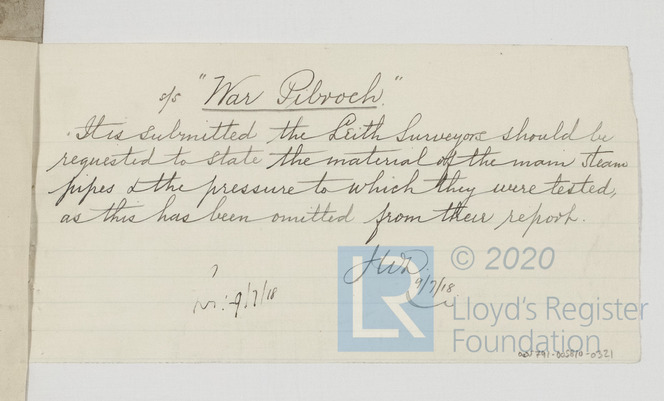 s/s "War Pibroch"
It is submitted the Leith Surveyors should be
requested to state the material of the main steam
pipes & the pressure to which they were tested,
as this has been omitted from their report.
9/7/18
9/7/18
LR
© 2020
Lloyd's Register
Foundation